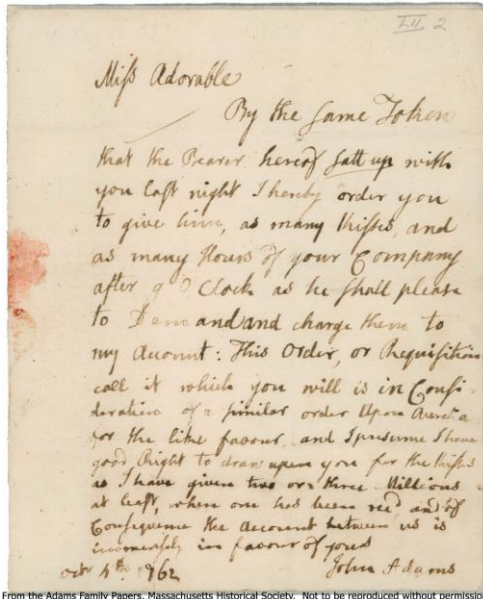 III 2
Miss Adorable
By the same Token
that the Bearer hereof satt up with
you last night I hereby order you
to give him, as many Kisses, and
as many Hours of your Company
after 9 O Clock as he shall please
to Demand and charge them to
my Account: This Order, or Requisition
call it which you will is in Consi-
deration of a similar order Upon Aurelia
for the like favour, and I presume I have
good Right to draw upon you for the Kisses
as I have given two or three Millions
at least, when one has been recd and of
Consequence the Account between us is
immensely in favour of yours
John Adams
Octr 4th 1762
From the Adams Family Papers, Massachusetts Historical Society. Not to be reproduced without permission